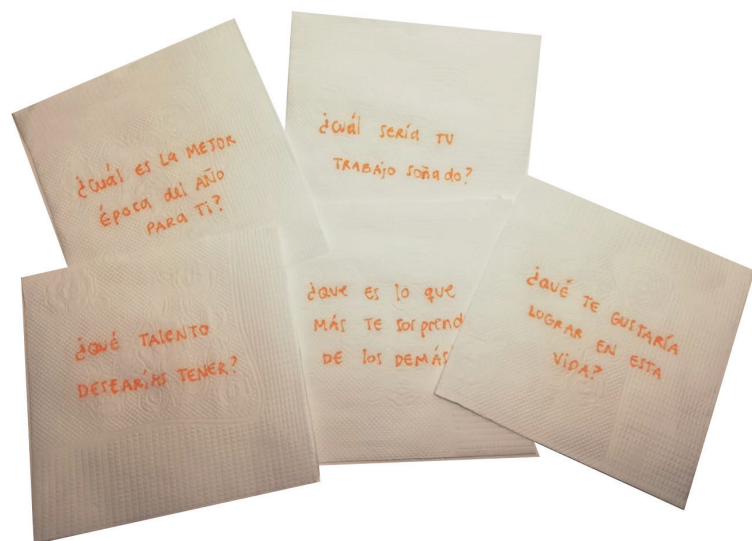 ¿Cuál es la mejor
época del año
para ti?
¿Cuál sería tu
trabajo soñado?
¿Qué talento
desearías tener?
¿Que es lo que
más te sorprend
de los demás
¿Qué te gustaría
lograr en esta
vida?